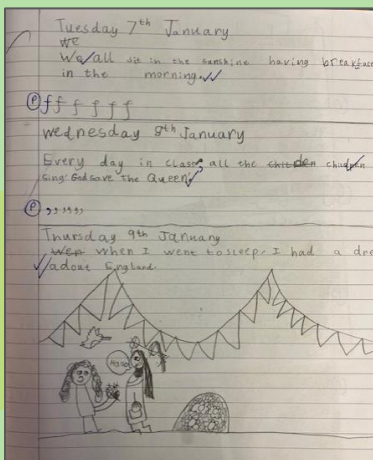 Tuesday 7th January
We
We all sit in the sunshine having breakfa
in the morning.
P f f f f f f
wednesday 8th January
Every day in class, all the children
sing God save The Queen.
P , , , , ,
Thursday 9th January
when I went to sleep, I had a dre
adout England.